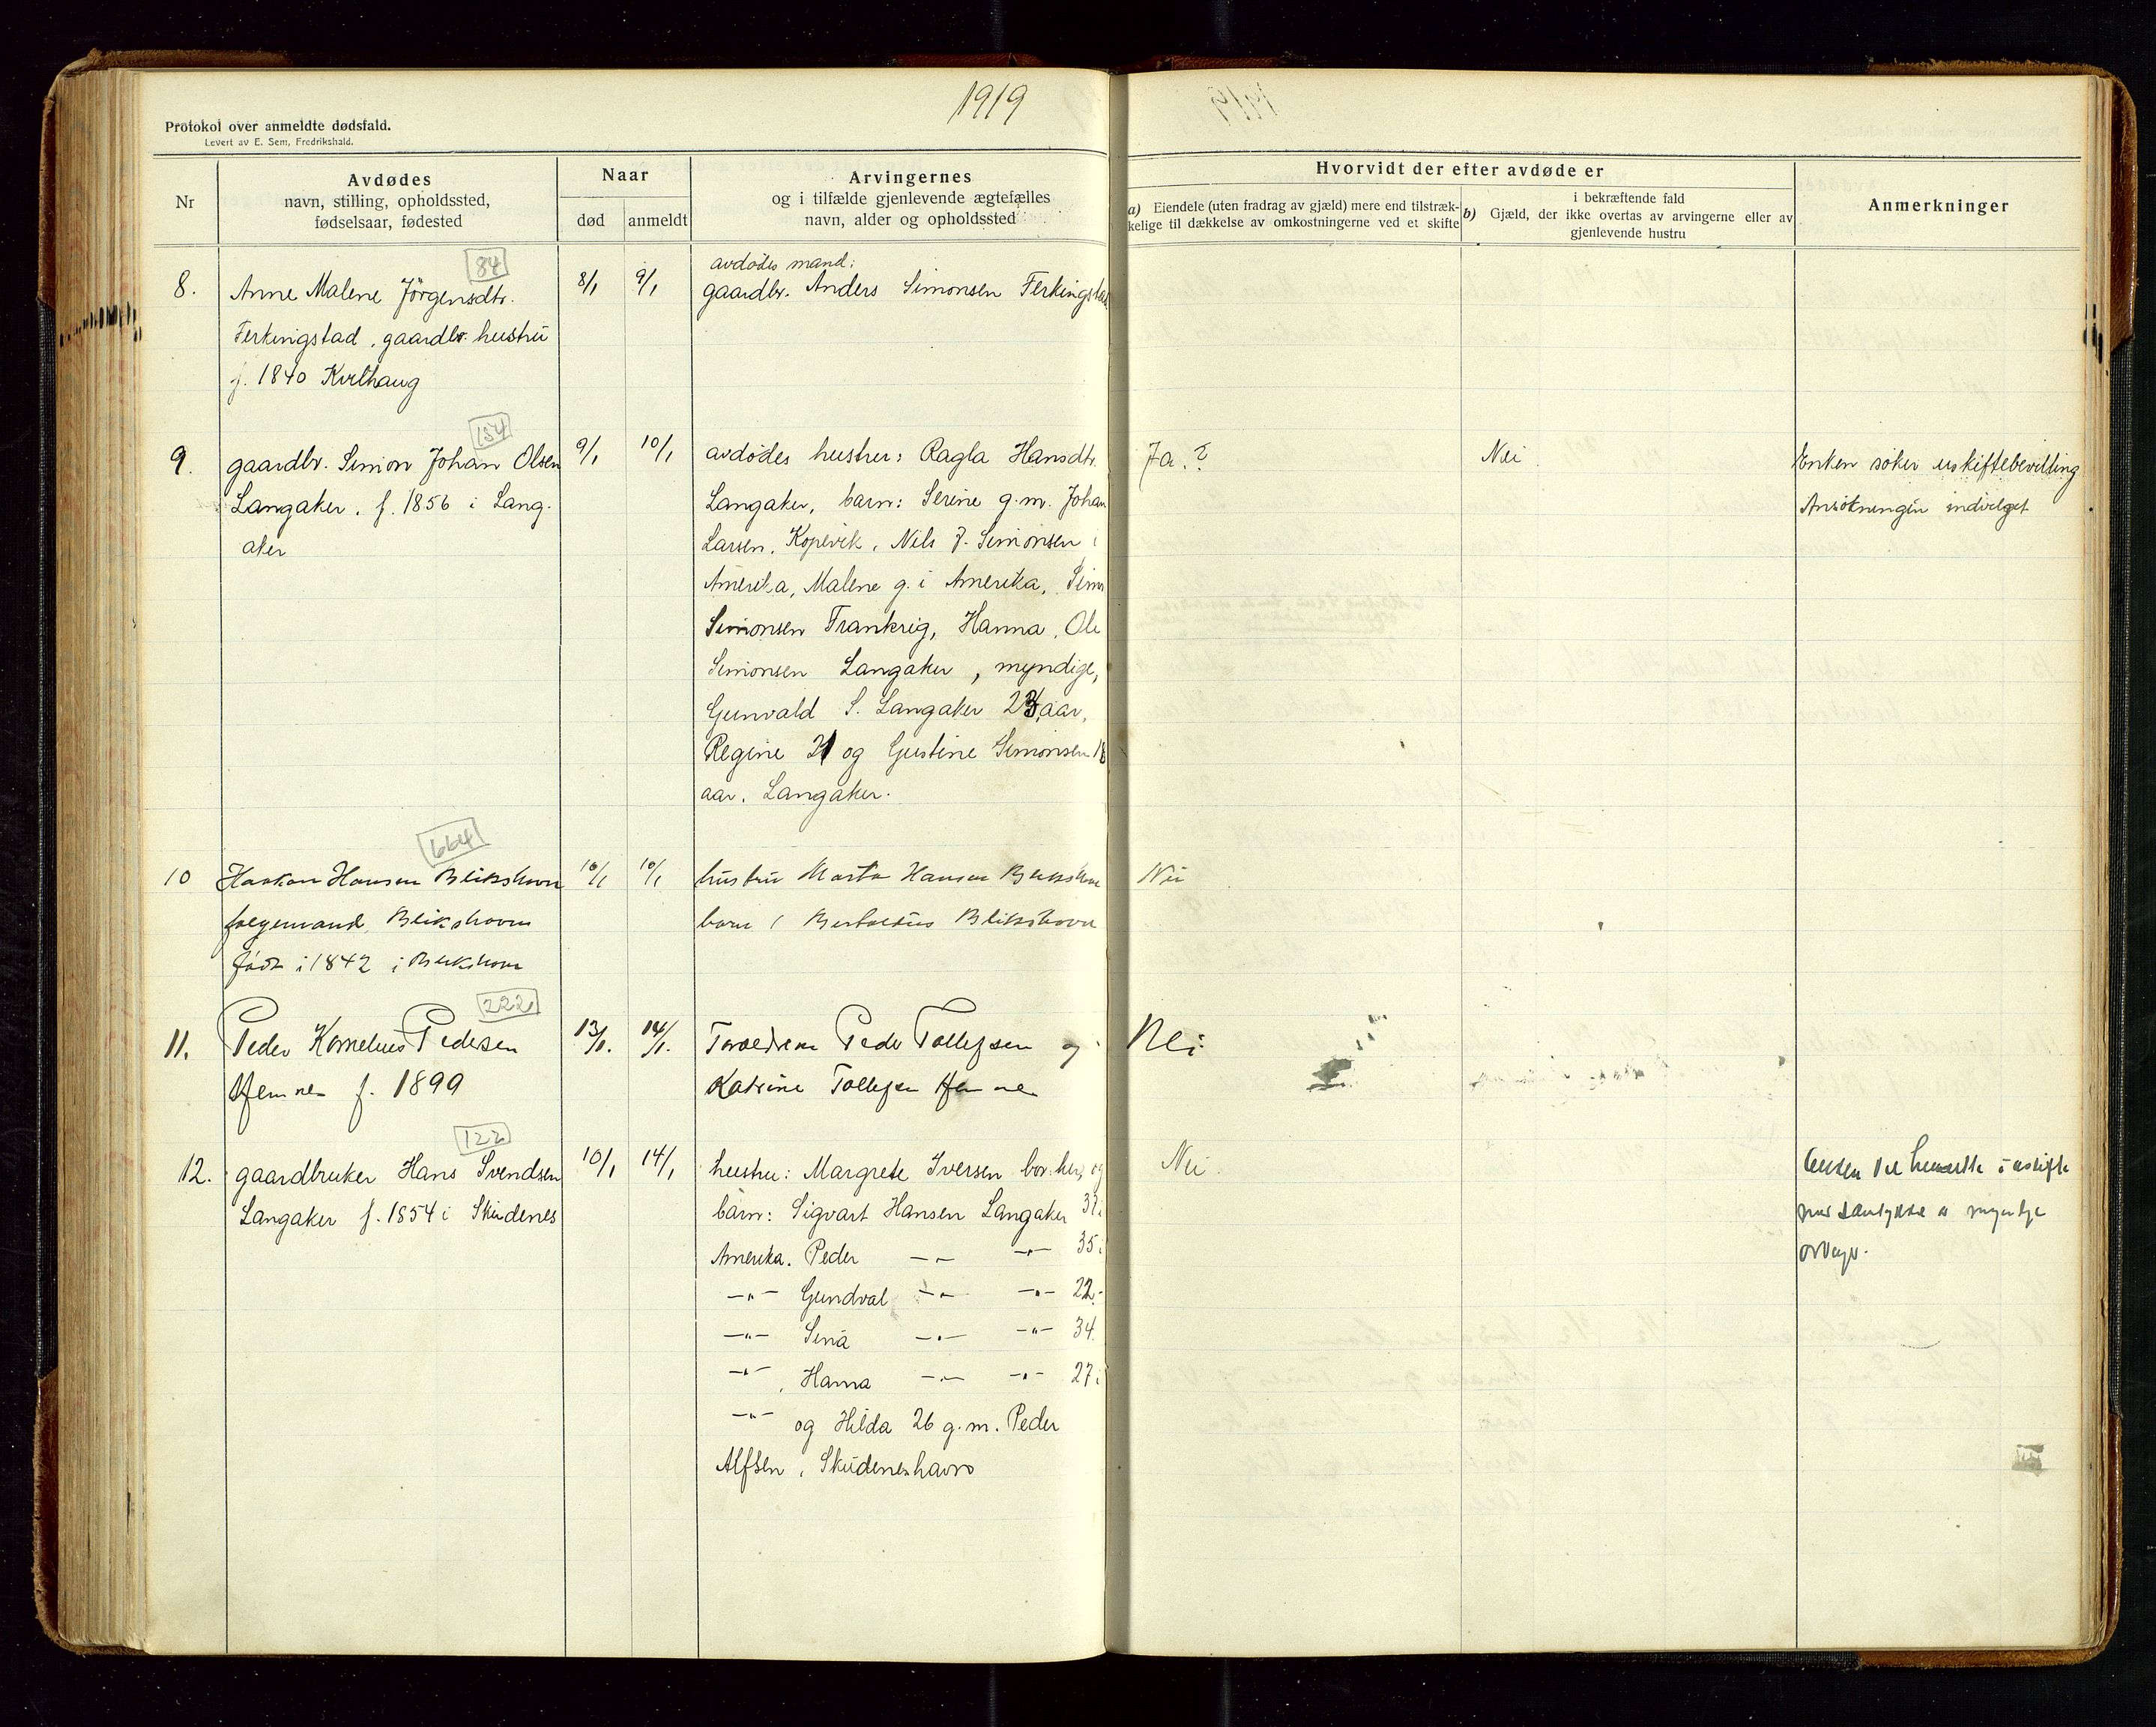 1919
Protokol over anmeldte dødsfald.
Levert av E. Sem, Fredrikshald.
Nr
Avdødes
navn, stilling, opholdssted,
fødselsaar, fødested
Naar
død
anmeldt
Arvingernes
og i tilfælde gjenlevende ægtefælles
navn, alder og opholdssted
Hvorvidt der efter avdøde er
a) Eiendele (uten fradrag av gjæld) mere end tilstræk-
kelige til dækkelse av omkostningerne ved et skifte
i bekræftende fald
b) Gjæld, der ikke overtas av arvingerne eller av
gjenlevende hustru
Anmerkninger
84
8.
Anne Malene Jörgensdtr.
Ferkingstad, gaardbr. hustru
f. 1840 Kvilhaug
8/1
9/1
avdødes mand:
gaardbr. Anders Simonsen Ferkingstad
154
9.
gaardbr. Simon Johan Olsen
Langaker, f. 1856 i Lang-
aker
9/1
10/1
avdødes hustru: Ragla Hansdtr.
Langaker, barn: Serine g.m. Johan
Larsen, Kopevik, Nils J. Simonsen i
Amerika, Malene g. i Amerika, Simon
Simonsen Frankrig, Hanna, Ole
Simonsen Langaker, myndige,
Gunvald S. Langaker 23 aar,
Regine 21 og Gustine Simonsen 18
aar, Langaker.
Ja.?
Nei
Enken søker uskiftebevilling
Ansøkningen indvilget
664
10
Haakon Hansen Blikshavn
følgemand, Blikshavn
født i 1842 i Blikshavn
10/1
10/1
hustru Marta Hansen Blikshavn
barn Blikshavn
Nei
222
11.
Peder Kornelius Pedersen
f. 1899
13/1.
14/1.
Foreldrene Peder Tollefsen og
Katrine Tollefsen
Nei
122
12.
gaardbruker Hans Svendsen
Langaker f. 1854 i Skudenes
10/1
14/1
hustru: Margrete Iversen bor her, og
barn: Sigvart Hansen Langaker 37 i
Amerika. Peder -"- -"- 35 i
-"- Gundval -"- -"- 22 i
-"- Sina -"- -"- 34
-"- , Hanna -"- -"- 27 i
-"- og Hilda 26 g.m. Peder
Alfsen, Skudeneshavn
Nei
i uskifte